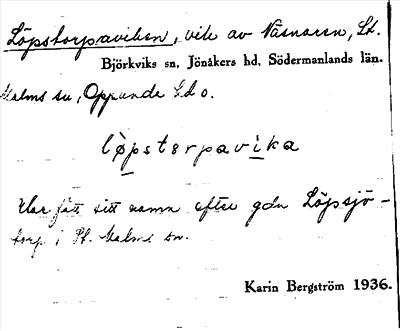 Löpstorpaviken, vik av Näsnaren, St.
Björkviks sn, Jönåkers hd, Södermanlands län.
Malms sn, Oppunda hd o.
lòpstərpavika
Har fått sitt namn efter gdn Löpsjö-
torp i St. Malms sn.
Karin Bergström 1936.